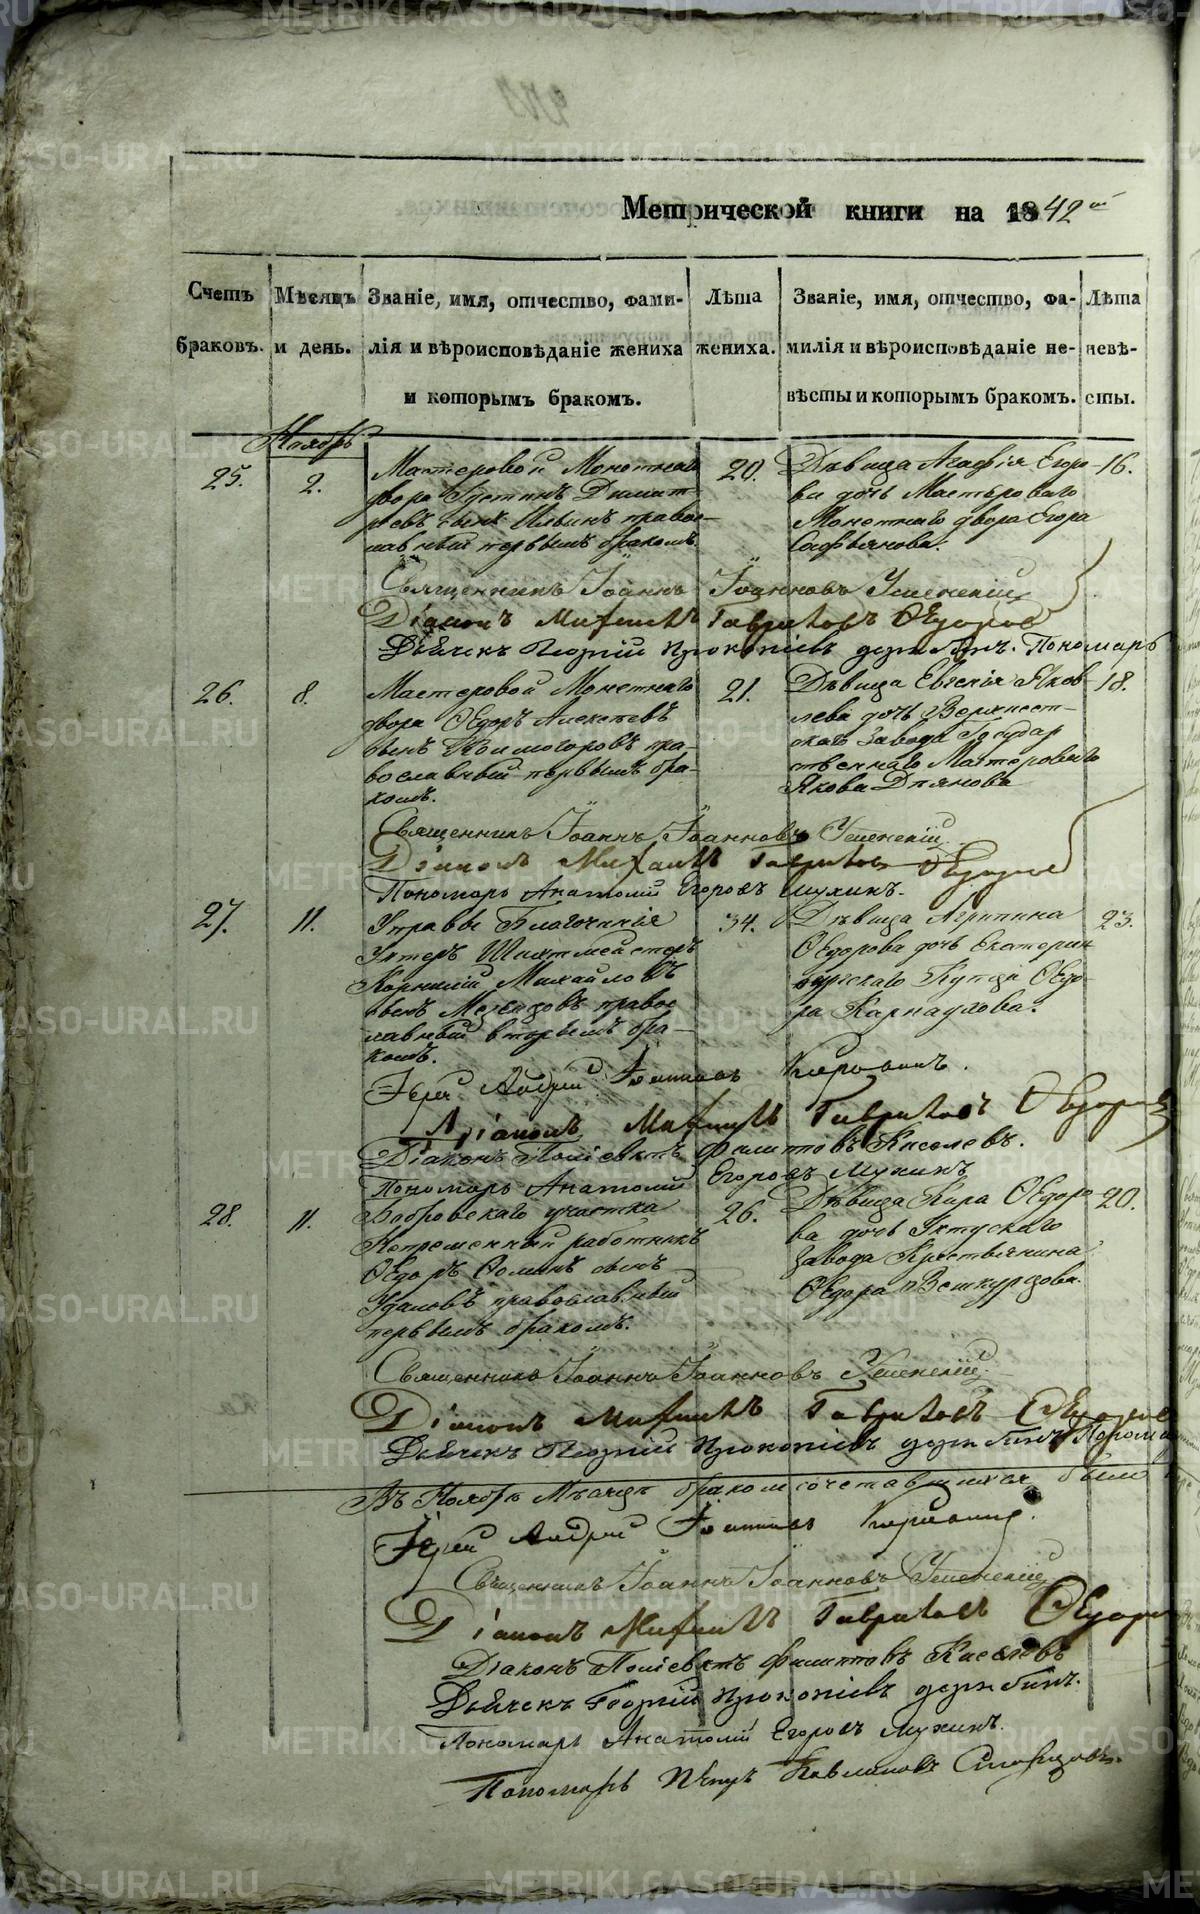 Метрической книги на 1842й
Счетъ браковъ.
Мѣсяцъ и день.
Званіе, имя, отчество, фами-
лія и вѣроисповѣданіе жениха
и которымъ бракомъ.
Лѣта
жениха.
Званіе, имя, отчество, фа-
милія и вѣроисповѣданіе не-
вѣсты и которымъ бракомъ.
Лѣта
невѣ-
сты.
Ноябрь
25.
2.
Мастеровой Монетнаго
двора Устинъ Димит-
ріевъ сынъ Ильинъ право-
славный первымъ бракомъ.
20.
Дѣвица Агафія Его-
ва дочь Мастероваго
Монетнаго двора Егора
16.
Священникъ Іоаннъ Іоанновъ Успенскій
Діаконъ Михаилъ Гавриловъ Ѳедоровъ
Дьячекъ Георгій Прокопіевъ Дерябинъ. Пономарь
26.
8.
Мастеровой Монетнаго
двора Ѳедоръ Алексѣевъ
сынъ Колмогоровъ пра-
вославный первымъ бра-
комъ.
21.
Дѣвица Евгенія Яков-
лева дочь Верхисет-
скаго Завода Государ
ственнаго Мастероваго
Якова
18.
Священникъ Іоаннъ Іоанновъ Успенскій
Діаконъ Михаилъ Гавриловъ Ѳедоровъ
Пономарь Анатолій Егоровъ Мухинъ.
27.
11.
Управы Благочинія
Унтеръ Шихтмейстеръ
Корнилій Михайловъ
сынъ православ
лавный вторымъ бра-
комъ.
34.
Дѣвица Агрипина
Ѳедорова дочь Екатерин
бургскаго Купца Ѳедо-
ра Карнаухова.
23.
Іерей Андрей
Діаконъ Михаилъ Гавриловъ Ѳедоровъ
Діаконъ Поліевктъ Филиповъ Киселевъ.
Пономарь Анатолій Егоровъ Мухинъ
28.
11.
Бобровскаго участка
Непременный работникъ
Ѳедоръ Ѳоминъ сынъ
Удаловъ православный
первымъ бракомъ.
26.
Дѣвица Кира Ѳедоро
ва дочь Уктускаго
Завода Крестьянина
Ѳедора
20.
Священникъ Іоаннъ Іоанновъ Успенскій
Діаконъ Михаилъ Гавриловъ Ѳедоровъ
Дьячекъ Георгій Прокопіевъ Дерябинъ
Въ Ноябрѣ Мѣсяцѣ бракомсочетавшихся было
Іерей Андрей
Священникъ Іоаннъ Іоанновъ Успенскій
Діаконъ Михаилъ Гавриловъ Ѳедоровъ
Діаконъ Поліевктъ Филиповъ Киселевъ
Дьячекъ Георгій Прокопіевъ Дерябинъ.
Пономарь Анатолій Егоровъ Мухинъ.
Пономарь Петръ Павлиновъ
METRIKI.GASO-URAL.RU